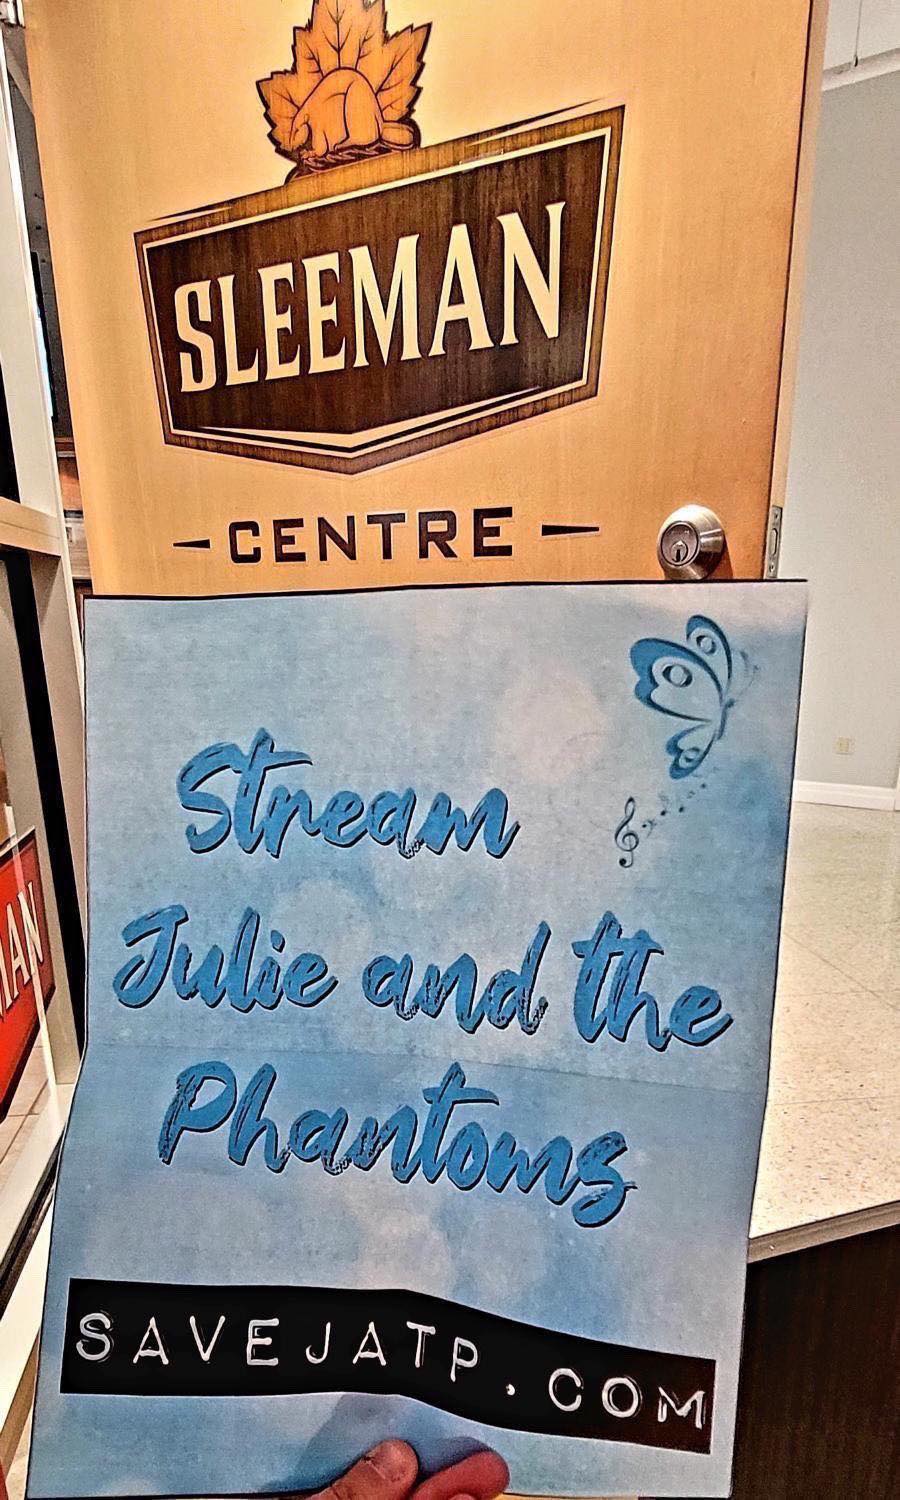 SLEEMAN
CENTRE
Stream
Julie and the
Phantoms
SAVEJATP.COM